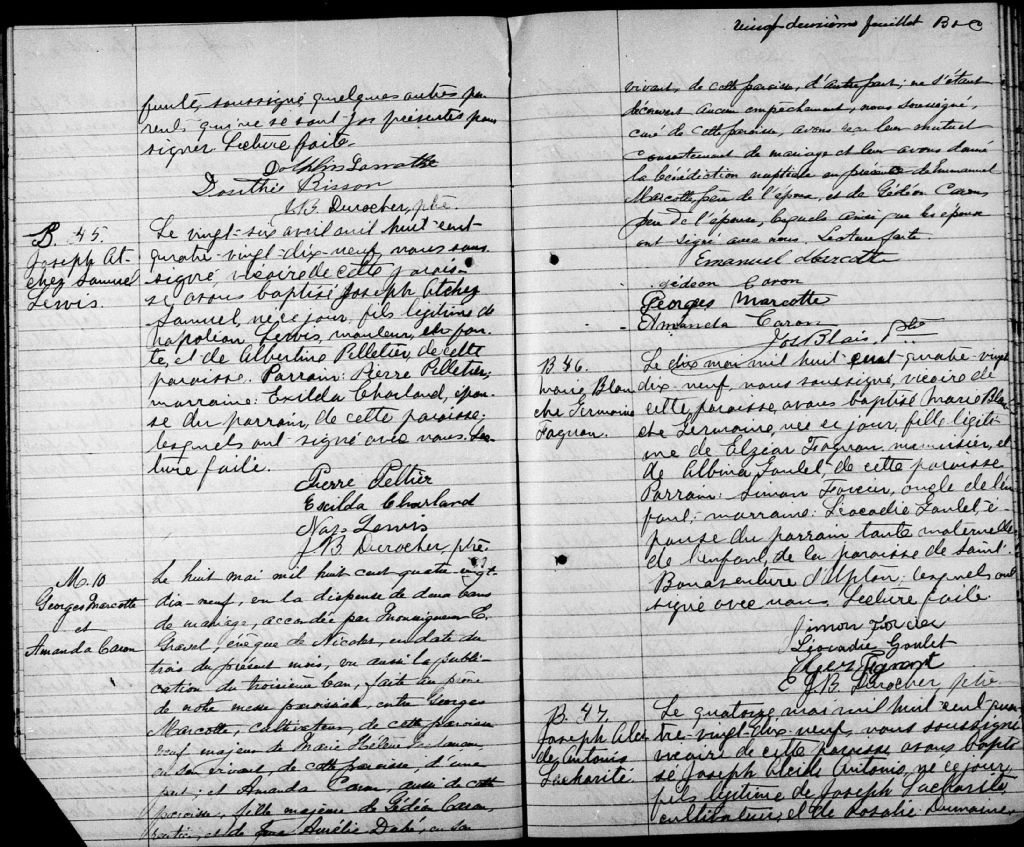 funte, soussigné quelques autres pa-
rents qui ne se sont pas présentés pour
signer. Lecture faite.
Dolphis Larrothe
Dosithée Bisson
J.B. Durocher, ptre
B. 45.
Joseph At-
chez Samuel
Lewis.
Le vingt-six avril mil huit cent
quatre-vingt-dix-neuf, nous sous-
signé, vicaire de cette parois-
se avons baptisé Joseph Atchez
Samuel, né ce jour, fils légitime de
Napoléon Lewis, mouleur,
et de Albertine Pelletier, de cette
paroisse. Parrain: Pierre Pelletier;
marraine: Exilda Charland, épou-
se du parrain, de cette paroisse;
lesquels ont signé avec nous. Lec-
ture faite.
Pierre Peltier
Exilda Charland
Nap. Lewis
J B Durocher, ptre.
M. 10
Georges Marcotte
et
Amanda Caron
Le huit mai mil huit cent quatre vingt
dix-neuf, vu la dispense de deux bans
de mariage, accordée par Monseigneur E.
Gravel, évêque de Nicolet, en date du
trois du présent mois, vu aussi la publi-
cation du troisième ban, faite au prône
de notre messe paroissiale, entre Georges
Marcotte, cultivateur, de cette paroisse
veuf majeur de Marie Hélène
en son vivant, de cette paroisse, d'une
part; et Amanda Caron, aussi de cette
paroisse, fille majeure de Gédéon Caron,
rentier, et de feue Aurélie Dubé, en son
vingt deuxième feuillet B & C
vivant, de cette paroisse, d'autre part; ne s'étant
découvert aucun empêchement, nous soussigné,
curé de cette paroisse, avons reçu leur mutuel
consentement de mariage et leur avons donné
la bénédiction nuptiale en présence de Emmanuel
Marcotte, père de l'époux, et de Gédéon Caron
père de l'épouse, lesquels ainsi que les époux
ont signé avec nous. Lecture faite.
Emanuel Marcotte
gédéon Caron
Georges Marcotte
Amanda Caron
Jos Blais, Ptre
B 46.
Marie Blan
che Germaine
Fagnan.
Le dix mai mil huit cent-quatre-vingt
dix-neuf, nous soussigné, vicaire de
cette paroisse, avons baptisé Marie Blan
che Germaine, née ce jour, fille légiti-
me de Elzéar Fagnan, menuisier, et
de Albina Goulet, de cette paroisse
Parrain: Simon Forcier, oncle de l'en
fant; marraine: Léocadie Goulet, é-
pouse du parrain tante maternelle
de l'enfant, de la paroisse de Saint-
Bonaventure d'Upton; lesquels ont
signé avec nous. Lecture faite
Simon Forcier
Léocadie Goulet
J.B. Durocher ptre
B. 47.
Joseph Alci
de Antonio
Lacharité
Le quatorze mai mil huit cent qua-
tre-vingt-dix-neuf, nous soussigné
vicaire de cette paroisse avons bapti-
sé Joseph Alcide Antonio, né ce jour,
fils légitime de Joseph Lacharité,
cultivateur, et de Rosalie Dumaine,